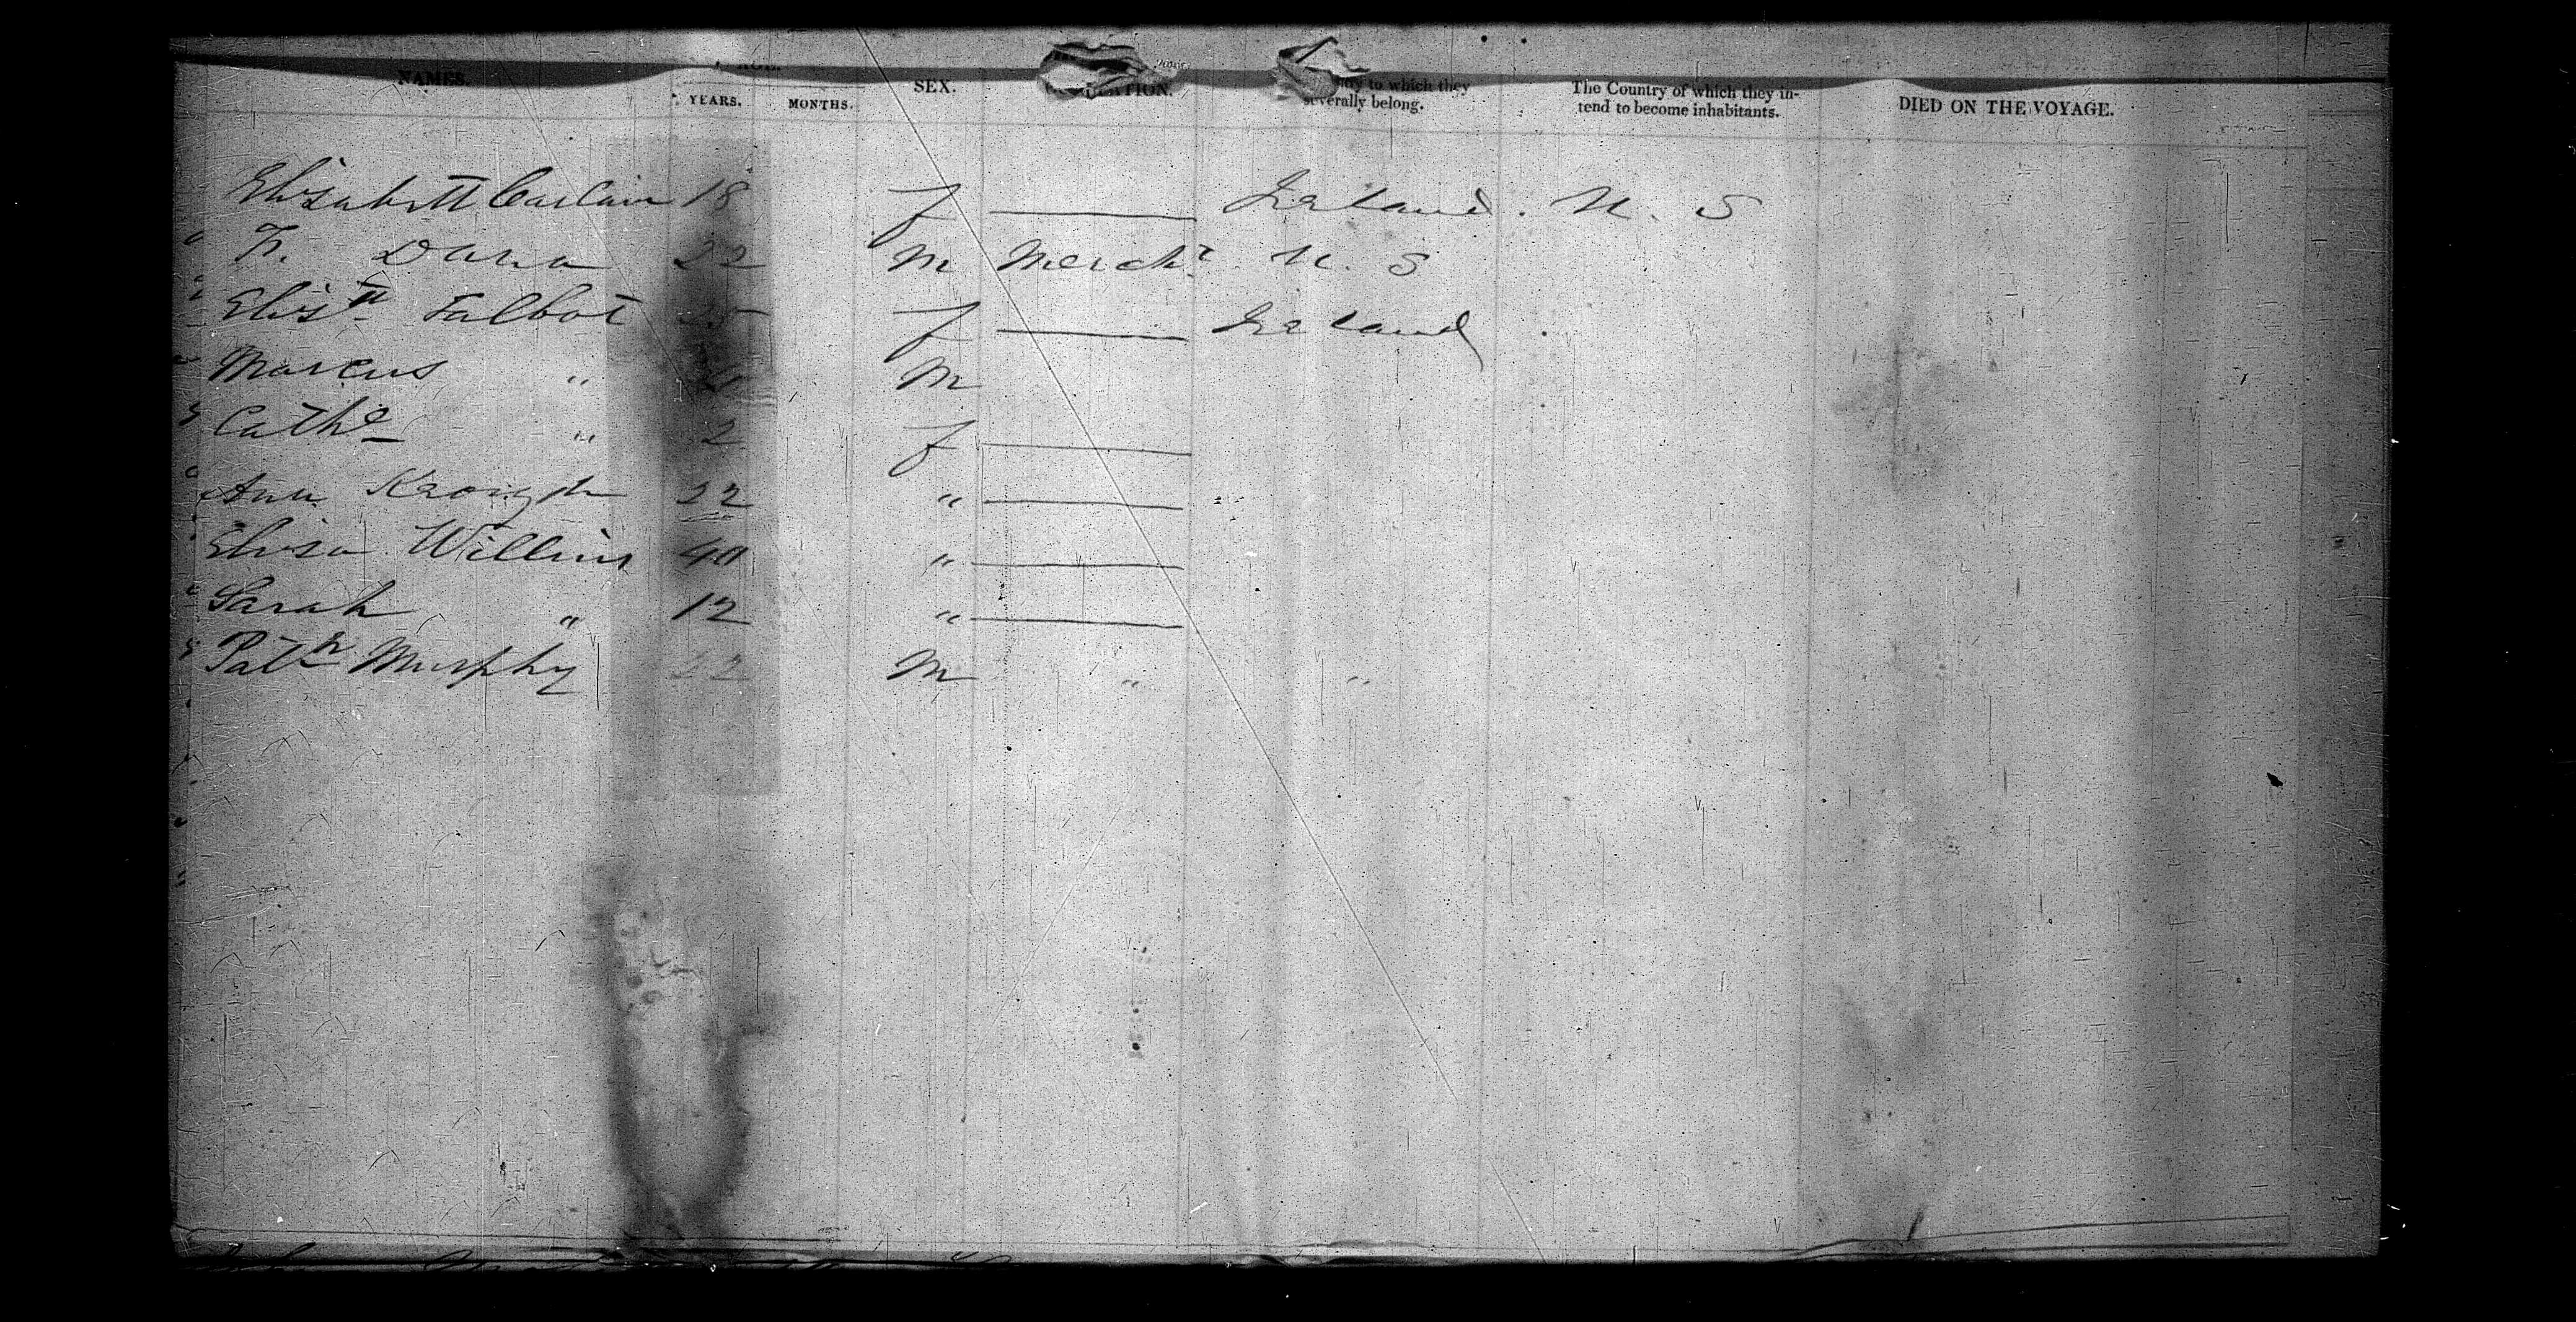 NAMES. AGE. YEARS. MONTHS. SEX. OCCUPATION. to which they severally belong. The Country of which they in-tend to become inhabitants. DIED ON THE VOYAGE.
Elisabett 18 f Ireland. U. S
Dana 22 M Mercht U. S
Elisth Talbot 25 f Ireland
Marcus " M
Cathe " 2 f
Ann 22 "
Elisa Willius 40 "
Sarah " 12 "
Patk Murphy 22 M " "